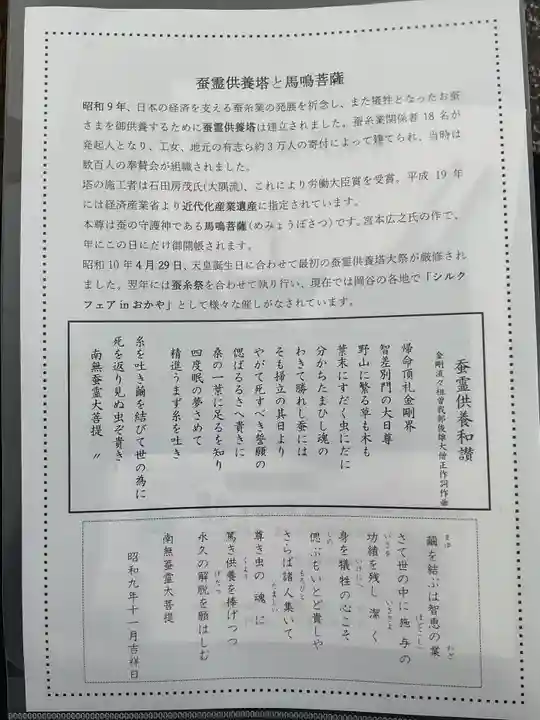 蚕霊供養塔と馬鳴菩薩
昭和9年、日本の経済を支える蚕糸業の発展を祈念し、また犠牲となったお蚕
さまを御供養するために蚕霊供養塔は建立されました。蚕糸業関係者18名が
発起人となり、工女、地元の有志ら約3万人の寄付によって建てられ、当時は
数百人の奉賛会が組織されました。
塔の施工者は石田房茂氏(大隅流)、これにより労働大臣賞を受賞。平成19年
には経済産業省より近代化産業遺産に指定されています。
本尊は蚕の守護神である馬鳴菩薩(めみょうぼさつ)です。宮本広之氏の作で、
年にこの日にだけ御開帳されます。
昭和10年4月29日、天皇誕生日に合わせて最初の蚕霊供養塔大祭が厳修され
ました。翌年には蚕糸祭を合わせて執り行い、現在では岡谷の各地で「シルク
フェア in おかや」として様々な催しがなされています。
蚕霊供養和讃
金剛流夕祖曽我部俊雄大僧正作詞作曲
帰命頂礼金剛界
智差別門の大日尊
野山に繁る草も木も
葉末にすだく虫にだに
分かちたまひし魂の
わきて勝れし蚕には
そも掃立の其日より
やがて死すべき誓願の
偲ばるるさへ貴きに
桑の一葉に足るを知り
四度眠の夢さめて
精進うまず糸を吐き
糸を吐き繭を結びて世の為に
死を返り見ぬ虫ぞ貴き
南無蚕霊大菩提 〃
繭を結ぶは智恵の業
さて世の中に施与の
功績を残し潔く
身を犠牲の心こそ
偲ぶもいとど貴しや
さらば諸人集いて
尊き虫の魂に
篤き供養を捧げつつ
永久の解脱を願はしむ
南無蚕霊大菩提
昭和九年十一月吉祥日